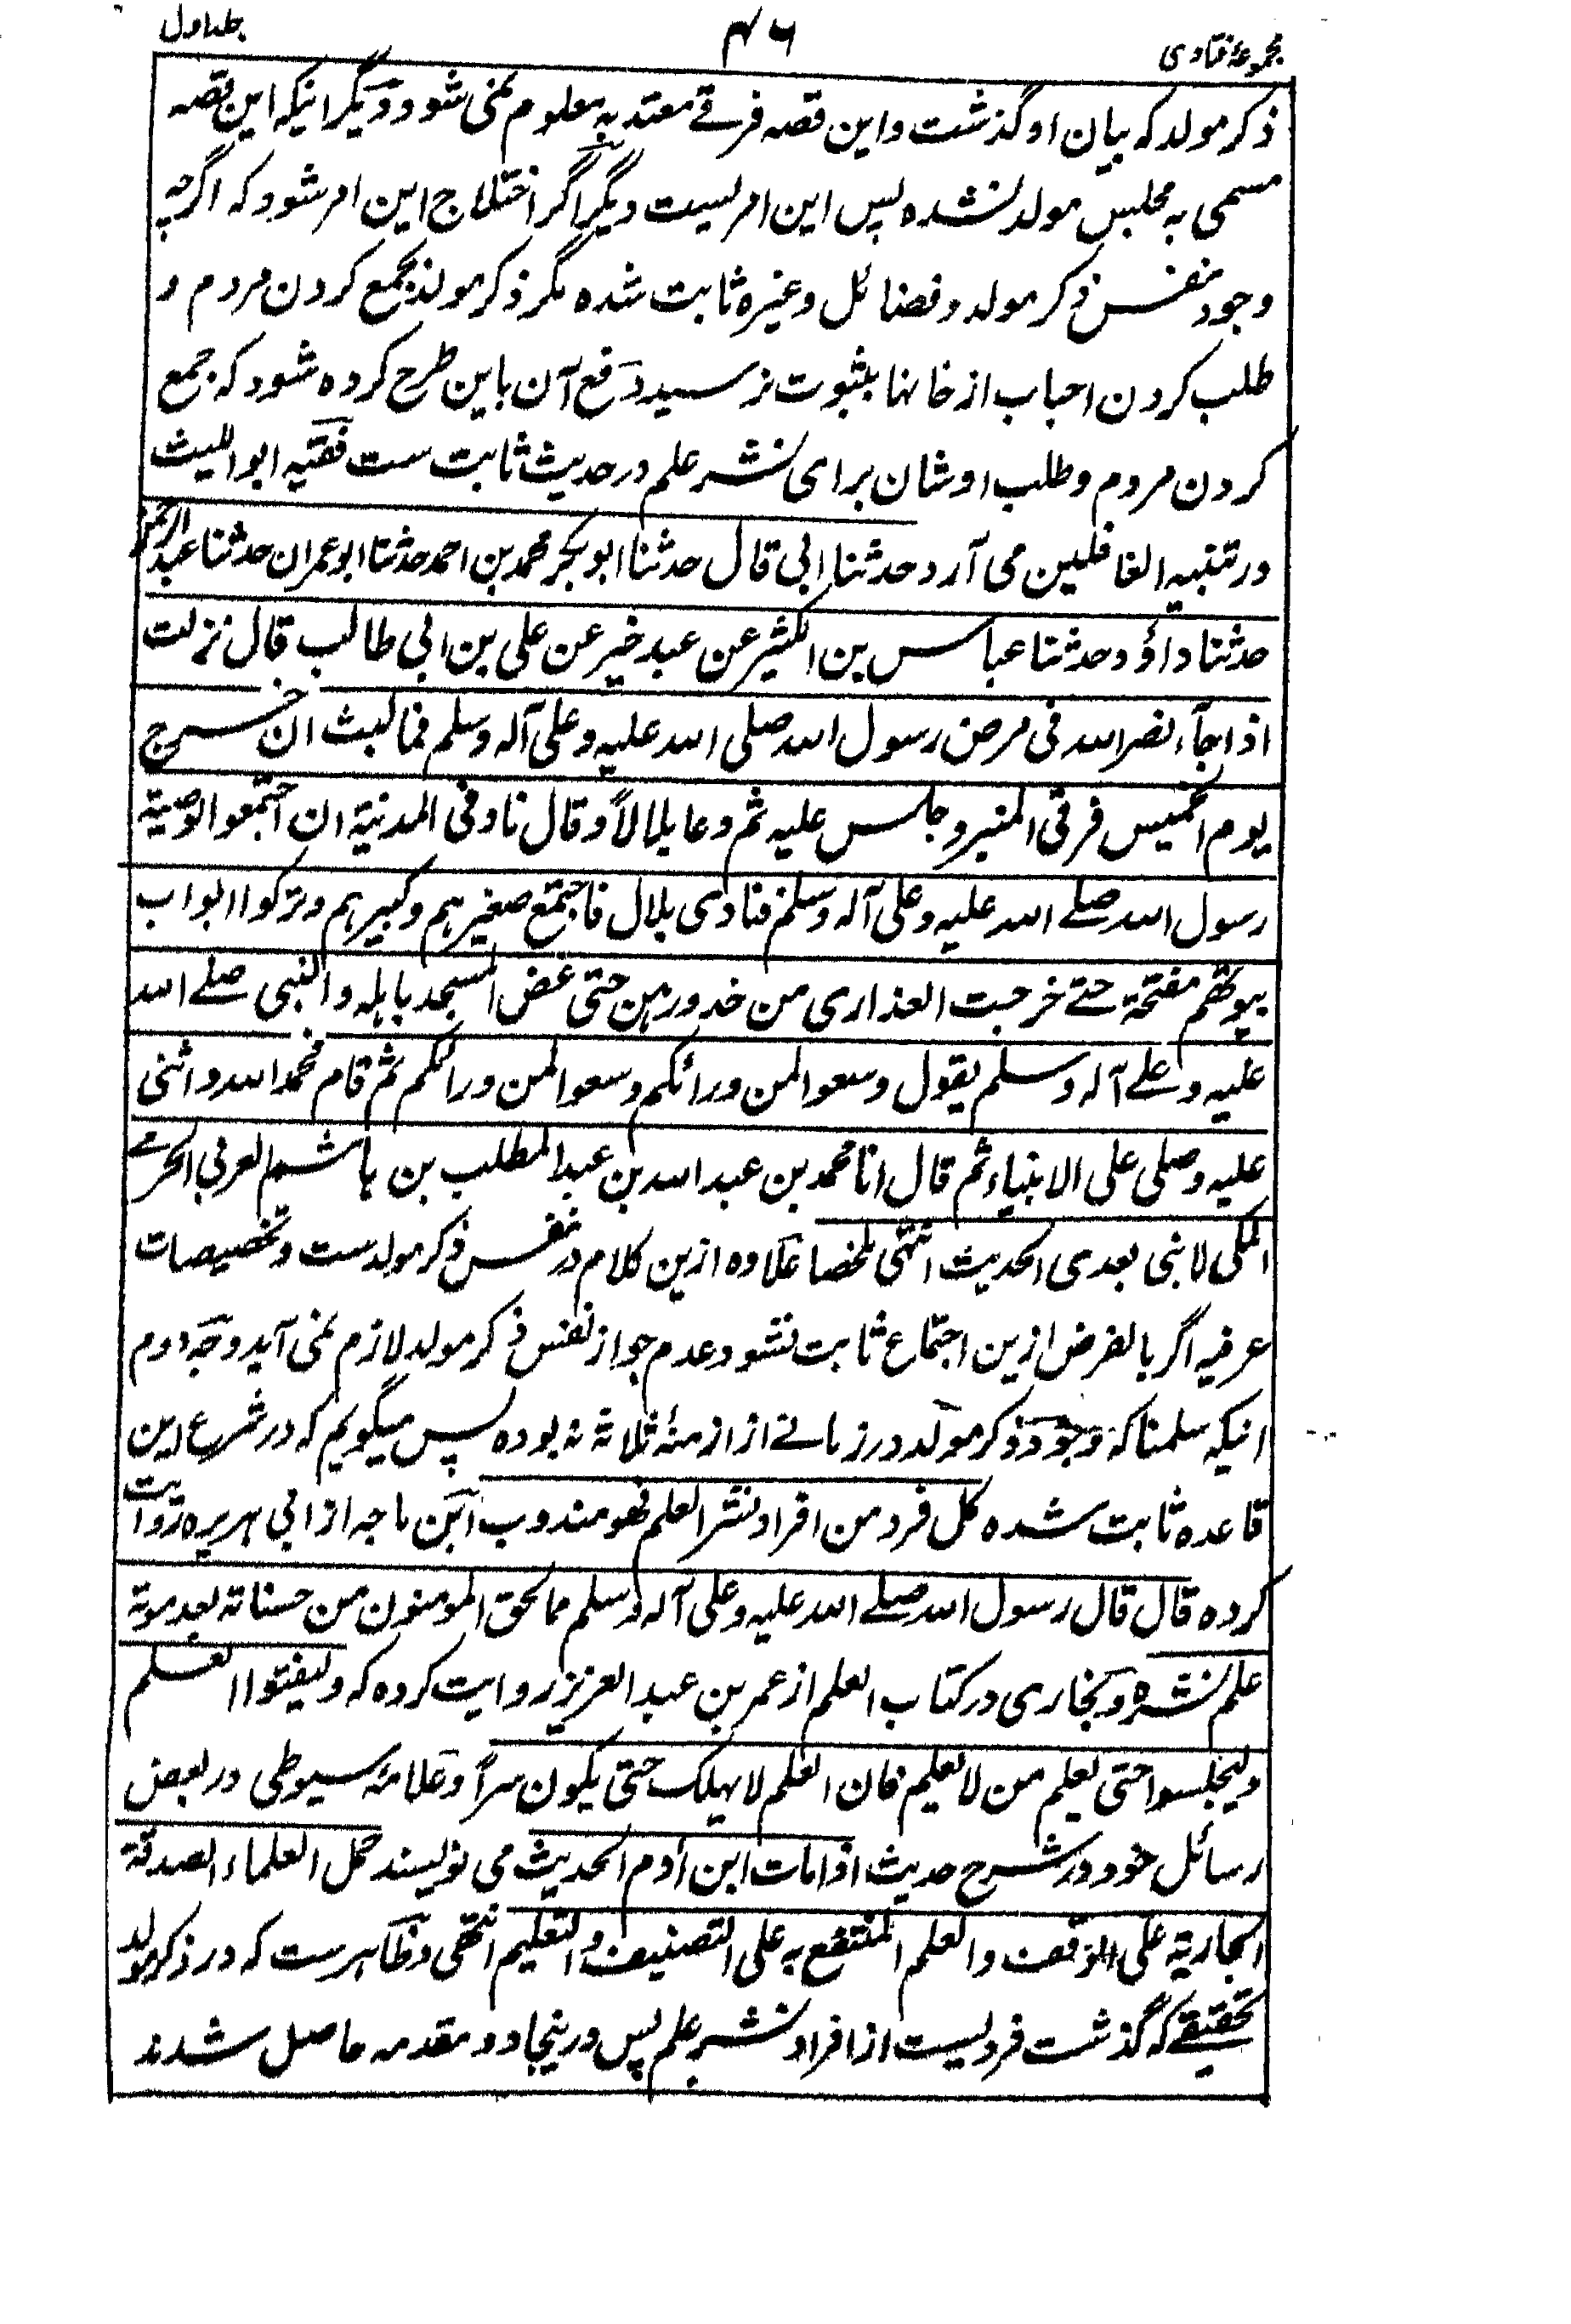 مجموعۂ فتاوی
۴۶
جلد اول
ذکر مولد که بیان او گذشت و این قصه فرقے معتد به معلوم نمی شود و دیگر اینکه این قصه
مسمی به مجلس مولد نشده پس این امر لیست دیگر اگر اختلاج این امر شود که اگرچه
وجود نفس ذکر مولد و فضائل وغیره ثابت شده مگر ذکر مولد بجمع کردن مردم و
طلب کردن احباب از خانها بثبوت نرسید دفع آن باین طرح کرده شود که جمع
کردن مردم و طلب اوشان برای نشر علم در حدیث ثابت ست فقیه ابو اللیث
در تنبیه الغافلین می آرد حدثنا ابی قال حدثنا ابوبکر محمد بن احمد حدثنا ابو عمران حدثنا عبد الرحمن
حدثنا داؤد حدثنا عباس بن الکثیر عن عبد خیر عن علی بن ابی طالب قال نزلت
اذا جآء نصر الله فی مرض رسول الله صلی الله علیه وعلی آله وسلم فما لبث ان خرج
یوم الخمیس فرقی المنبر وجلس علیه ثم دعا بلالاً وقال ناد فی المدینة ان اجتمعوا لوصیة
رسول الله صلے الله علیه وعلی آله وسلم فنادی بلال فاجتمع صغیرهم وکبیرهم وترکوا ابواب
بیوتهم مفتحة حتے خرجت العذاری من خدورهن حتی غض المسجد باهله والنبی صلے الله
علیه وعلے آله وسلم یقول وسعوا لمن ورائکم وسعوا لمن ورائکم ثم قام فحمد الله واثنی
علیه وصلی علی الانبیاء ثم قال انا محمد بن عبد الله بن عبد المطلب بن هاشم العربی الحرمے
المکی لا نبی بعدی الحدیث انتهی ملخصا علاوه ازین کلام در نفس ذکر مولد ست و تخصیصات
عرفیه اگر بالفرض ازین اجتماع ثابت نشود عدم جواز نفس ذکر مولد لازم نمی آید وجه دوم
اینکه سلمنا که وجود ذکر مولد در زمانے از ازمنۂ ثلاثه نه بوده پس میگویم که در شرع این
قاعده ثابت شده کل فرد من افراد نشر العلم فهو مندوب ابن ماجه از ابی هریره روایت
کرده قال قال رسول الله صلے الله علیه وعلی آله وسلم مما لحق المومنون من حسناته بعد موته
علم نشره و بخاری در کتاب العلم از عمر بن عبد العزیز روایت کرده که ولیفتوا العلم
ولیجلسوا حتی یعلم من لا یعلم فان العلم لا یهلک حتی یکون سراً و علامه سیوطی در بعض
رسائل خود در شرح حدیث اذا مات ابن آدم الحدیث می نویسند حمل العلماء الصدقة
الجاریة علی الوقف والعلم المنتفع به علی التصنیف والتعلیم انتهی و ظاهر ست که در ذکر مولد
تحقیقے که گذشت فردیست از افراد نشر علم پس درینجا دو مقدمه حاصل شدند